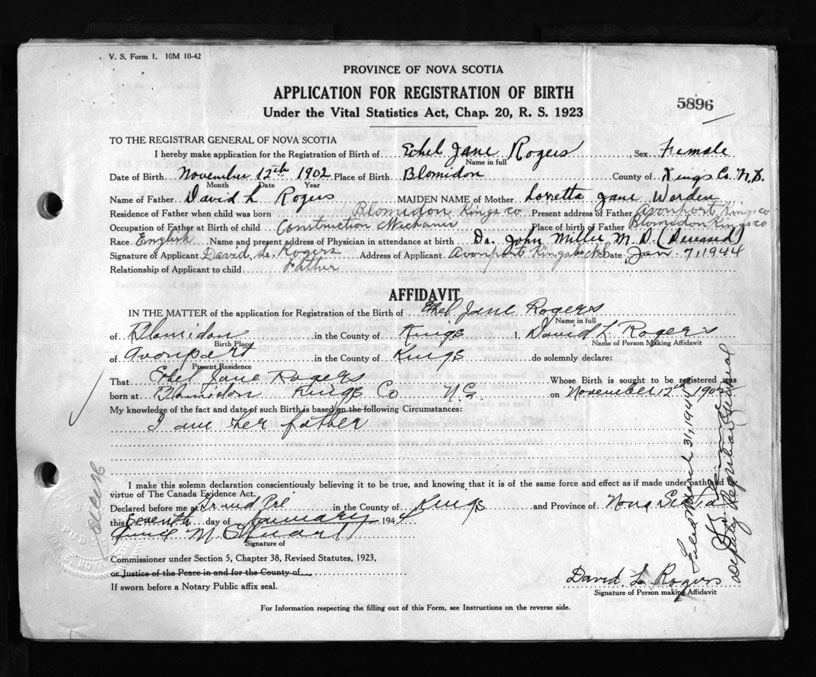 V. S. Form 1. 10M 10-42
PROVINCE OF NOVA SCOTIA
APPLICATION FOR REGISTRATION OF BIRTH
5896
Under the Vital Statistics Act, Chap. 20, R. S. 1923
TO THE REGISTRAR GENERAL OF NOVA SCOTIA
I hereby make application for the Registration of Birth of Ethel Jane Rogers, Sex Female
Name in full
Date of Birth November 12th 1902 Place of Birth Blomidon County of Kings Co. N.S.
Month Date Year
Name of Father David L Rogers MAIDEN NAME of Mother Loretta Jane Worden
Residence of Father when child was born Blomidon Kings co Present address of Father Avonport Kings co
Occupation of Father at Birth of child Construction Mechanic Place of birth of Father Blomidon Kings co
Race English Name and present address of Physician in attendance at birth Dr. John Miller M. D. (Deceased)
Signature of Applicant David L. Rogers Address of Applicant Avonport Kings Date Jan. 7, 1944
Relationship of Applicant to child Father
AFFIDAVIT
IN THE MATTER of the application for Registration of the Birth of Ethel Jane Rogers
Name in full
of Blomidon in the County of Kings I, David L. Rogers
Birth Place Name of Person Making Affidavit
of Avonport in the County of Kings do solemnly declare:
Present Residence
That Ethel Jane Rogers Whose Birth is sought to be registered was
born at Blomidon Kings Co N.S. on November 12th 1902
My knowledge of the fact and date of such Birth is based on the following Circumstances:
I am her father
I make this solemn declaration conscientiously believing it to be true, and knowing that it is of the same force and effect as if made under path and
virtue of The Canada Evidence Act.
Declared before me at Grand Pré in the County of Kings and Province of Nova Scotia
this Seventh day of January 1944
Signature of
Commissioner under Section 5, Chapter 38, Revised Statutes, 1923,
or Justice of the Peace in and for the County of
If sworn before a Notary Public affix seal.
David L. Rogers
Signature of Person making Affidavit
For Information respecting the filling out of this Form, see Instructions on the reverse side.
Filed March 31, 1944
Deputy Registrar General